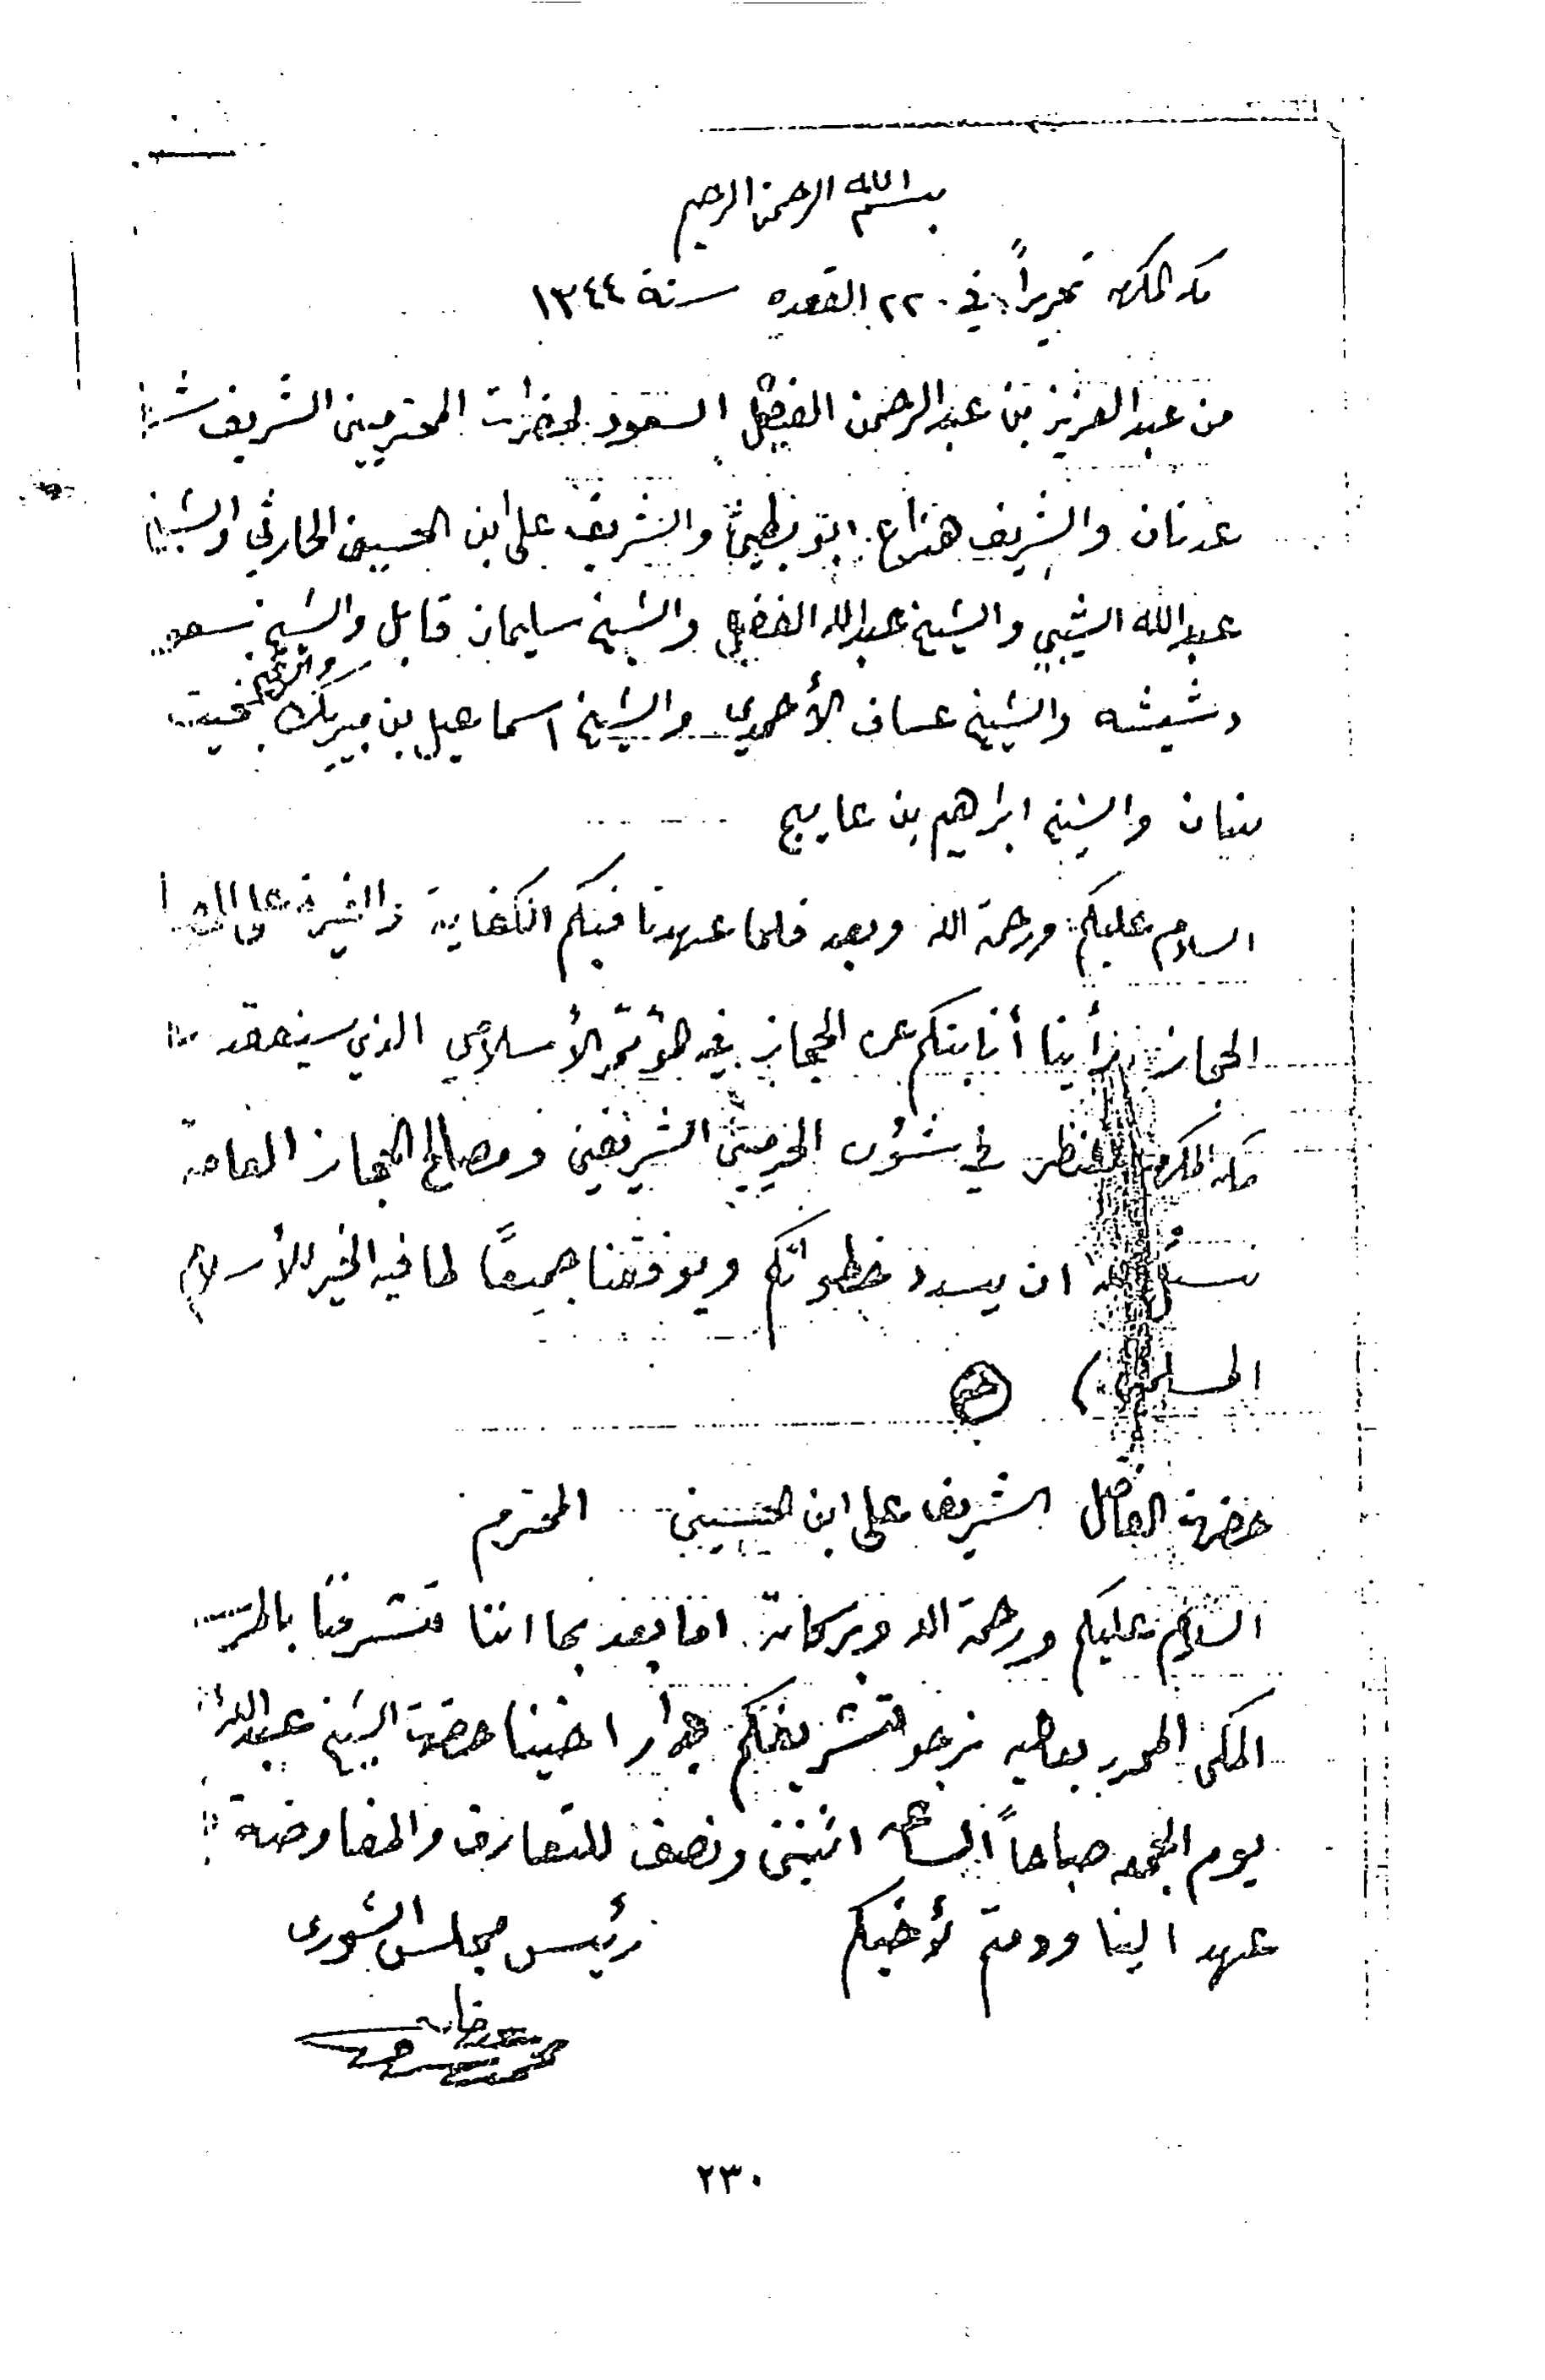 بسم الله الرحمن الرحيم
مكه المكرمه تحريراً في ٢٢ القعده سنة ١٣٤٤
من عبد العزيز بن عبد الرحمن الفيصل السعود لحضرات المحترمين الشريف
عدنان والشريف هزاع ابو بطين والشريف على ابن الحسين الحارثي والشيخ
عبد الله الشيبي والشيخ عبد الله الفضل والشيخ سليمان قابل والشيخ سعود
دشيشه والشيخ عساف الأحمدي والشيخ اسماعيل بن مبيريك والشيخ بخيت
بنيان والشيخ ابراهيم بن عايج
السلام عليكم ورحمة الله وبعد فلما عهدنا فيكم الكفاية والغيرة على
الحجاز رأينا أنابتكم عن الحجاز في المؤتمر الأسلامي الذي سينعقد
مكه المكرمه للنظر في شؤون الحرمين الشريفين ومصالح الحجاز العامة
نسئل الله ان يسدد خطواتكم ويوفقنا جميعاً لما فيه الخير للأسلام
المسلمين ختم
حضرة الفاضل الشريف على ابن الحسين المحترم
السلام عليكم ورحمة الله وبركاته اما بعد بما اننا تشرفنا
الملكى المحرر بعاليه نرجو تشريفكم بدار اخينا حضرة الشيخ عبد الله
يوم الجمعه صباحاً الساعه اثنين ونصف للتعارف والمفاوضة
عهد الينا ودمتم لأخيكم رئيس مجلس الشورى
٢٣٠